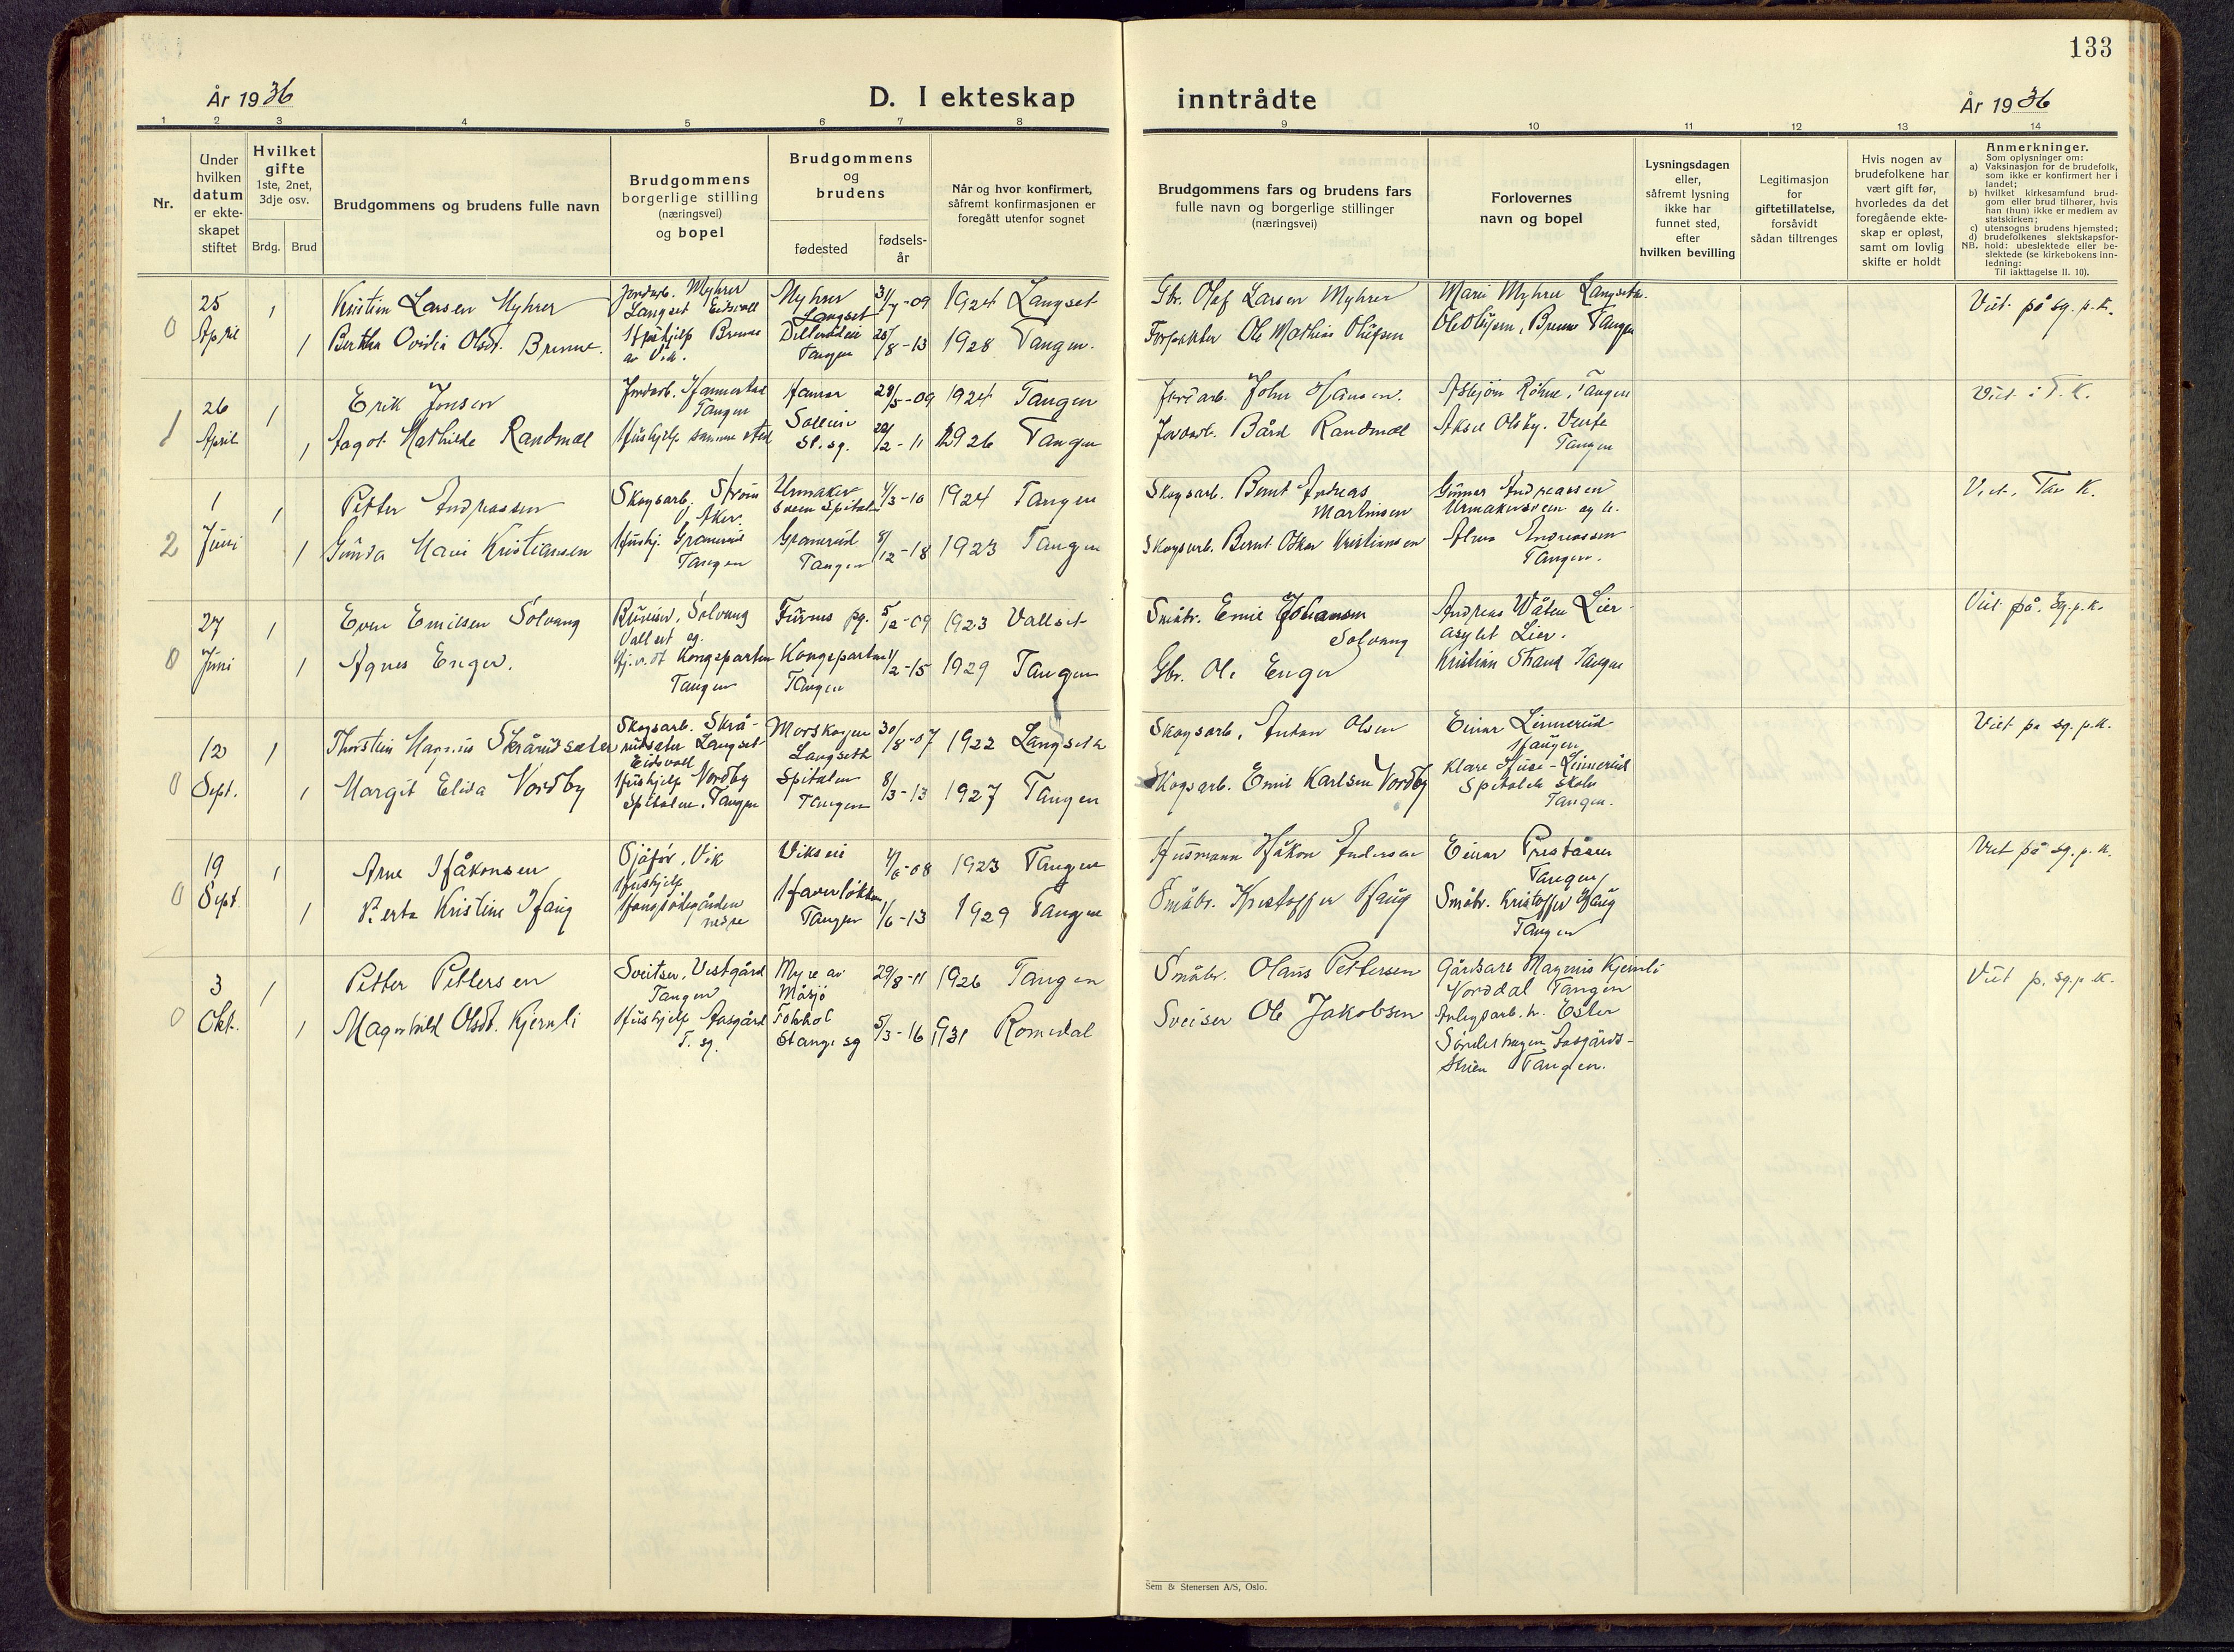 133
År 1936
D. I ekteskap
inntrådte
År 1936
1 2 3 4 5 6 7 8
9 10 11 12 13 14
Nr.
Under
hvilken
datum
er ekte-
skapet
stiftet
Hvilket
gifte
1ste, 2net,
3dje osv.
Brdg. Brud
Brudgommens og brudens fulle navn
Brudgommens
borgerlige stilling
(næringsvei)
og bopel
Brudgommens
og
brudens
fødested
fødsels-
år
Når og hvor konfirmert,
såfremt konfirmasjonen er
foregått utenfor sognet
Brudgommens fars og brudens fars
fulle navn og borgerlige stillinger
(næringsvei)
Forlovernes
navn og bopel
Lysningsdagen
eller,
såfremt lysning
ikke har
funnet sted,
efter
hvilken bevilling
Legitimasjon
for
giftetillatelse,
forsåvidt
sådan tiltrenges
Hvis nogen av
brudefolkene har
vært gift før,
hvorledes da det
foregående ekte-
skap er opløst,
samt om lovlig
skifte er holdt
Anmerkninger.
Som oplysninger om:
a) Vaksinasjon for de brudefolk,
som ikke er konfirmert her i
landet;
b) hvilket kirkesamfund brud-
gom eller brud tilhører, hvis
han (hun) ikke er medlem av
statskirken;
c) utensogns brudens hjemsted;
d) brudefolkenes slektskapsfor-
NB. hold: ubeslektede eller be-
slektede (se kirkebokens inn-
ledning:
Til iakttagelse II. 10).
0
25
April
1
1
Kristian Larsen Myhrer
Bertha Ovidia Olsdt. Brenne.
Jordarb. Myhrer
Langset Eidsvoll
Hushjelp Brenne
av Vik.
Myhrer
Langset
Tangen
31/7-09
28/8-13
1924 Langset
1928 Tangen.
Gbr. Olaf Larsen Myhrer
Forpakter Ole Mathias Olufsen
Marie Myhrer Langseth.
Brenne Tangen
Viet på sg. p. k.
1
26
April
1
1
Erik Jonsen
Aagot Mathilde Randmæl
Jordarb.
Tangen
Hushjelp samme sted
Hamar
Solliein
St. sg.
29/5-09
28/2-11
1924 Tangen
1926 Tangen
Jordarb. John Hansen.
Jordarb. Bård Randmæl
Asbjørn Röhne, Tangen
Aksel Olsby.
Tangen
Viet i T. K.
2
1
Juni
1
1
Petter Andreassen
Gunda Marie Kristiansen
Skogsarb. Strøm
Aker.
Hushj. Granerud
Tangen
Urmaker
sveen Spitalen
Granerud
Tangen
4/3-10
8/12-18
1924 Tangen
1923 Tangen
Skogsarb. Bernt Andreas
Martinsen
Skogsarb. Bernt Oskar Kristiansen
Gunnar Andreassen
Urmakersveen og h.
Alma Andreassen
Tangen.
0
27
Juni
1
1
Even Emilsen Solvang
Agnes Enger.
Solvang
Vallset og
Kongsparten
Tangen
Furnes pg.
Kongeparten
Tangen
5/2-09
1/2-15
1923 Vallset
1929 Tangen
Småbr. Emil Johansen
Solvang
Gbr. Ole Enger
Andreas Wålen Lier
asylet Lier.
Kristian Strand Tangen
Viet på. sg. p. k.
0
12
Sept.
1
1
Thorstein Magnus Skrårudsæter
Margit Elida Nordby
Skogsarb. Skrå-
rudsæter Langset
Eidsvoll
Hushjelp Nordby
Spitalen, Tangen
Morskogen
Langseth
Spitalen
Tangen
30/8-07
8/3-13
1922 Langseth
1927 Tangen
Skogsarb. Anton Olsen
Skogsarb. Emil Karlsen Nordby
Einar Linnerud
Haugen
Klare Huse-Linnerud
Spitalen skole
Tangen.
Viet på sg. p. k.
0
19
Sept.
1
1
Arne Håkonsen
Berta Kristine Haug
Sjåfør, Vik
Hushjelp
nedre
Vikseie
Haverløkken
Tangen
4/6-08
1/6-13
1923 Tangen
1929 Tangen
Husmann Håkon Andersen
Småbr. Kristoffer Haug
Einar Preståsen
Tangen
Småbr. Kristoffer Haug
Tangen
Viet på sg. p. k.
0
3
Okt.
1
1
Petter Pettersen
Magnhild Olsdt. Kjernli
Sveitser, Vestgård
Tangen
Hushjelp Aasgård
T. sg.
Myre av
Målsjø
Tokhol
Stange sg
29/8-11
5/3-16
1926 Tangen
1931 Romedal
Småbr. Olaus Pettersen
Sveiser Ole Jakobsen
Gårdsarb Magnus Kjernli
Norddal Tangen
Anlegsarb. h. Ester
Sønderhagen, Aasgårds-
Tangen.
Viet p. sg. p. k.
Sem & Stenersen A/S, Oslo.